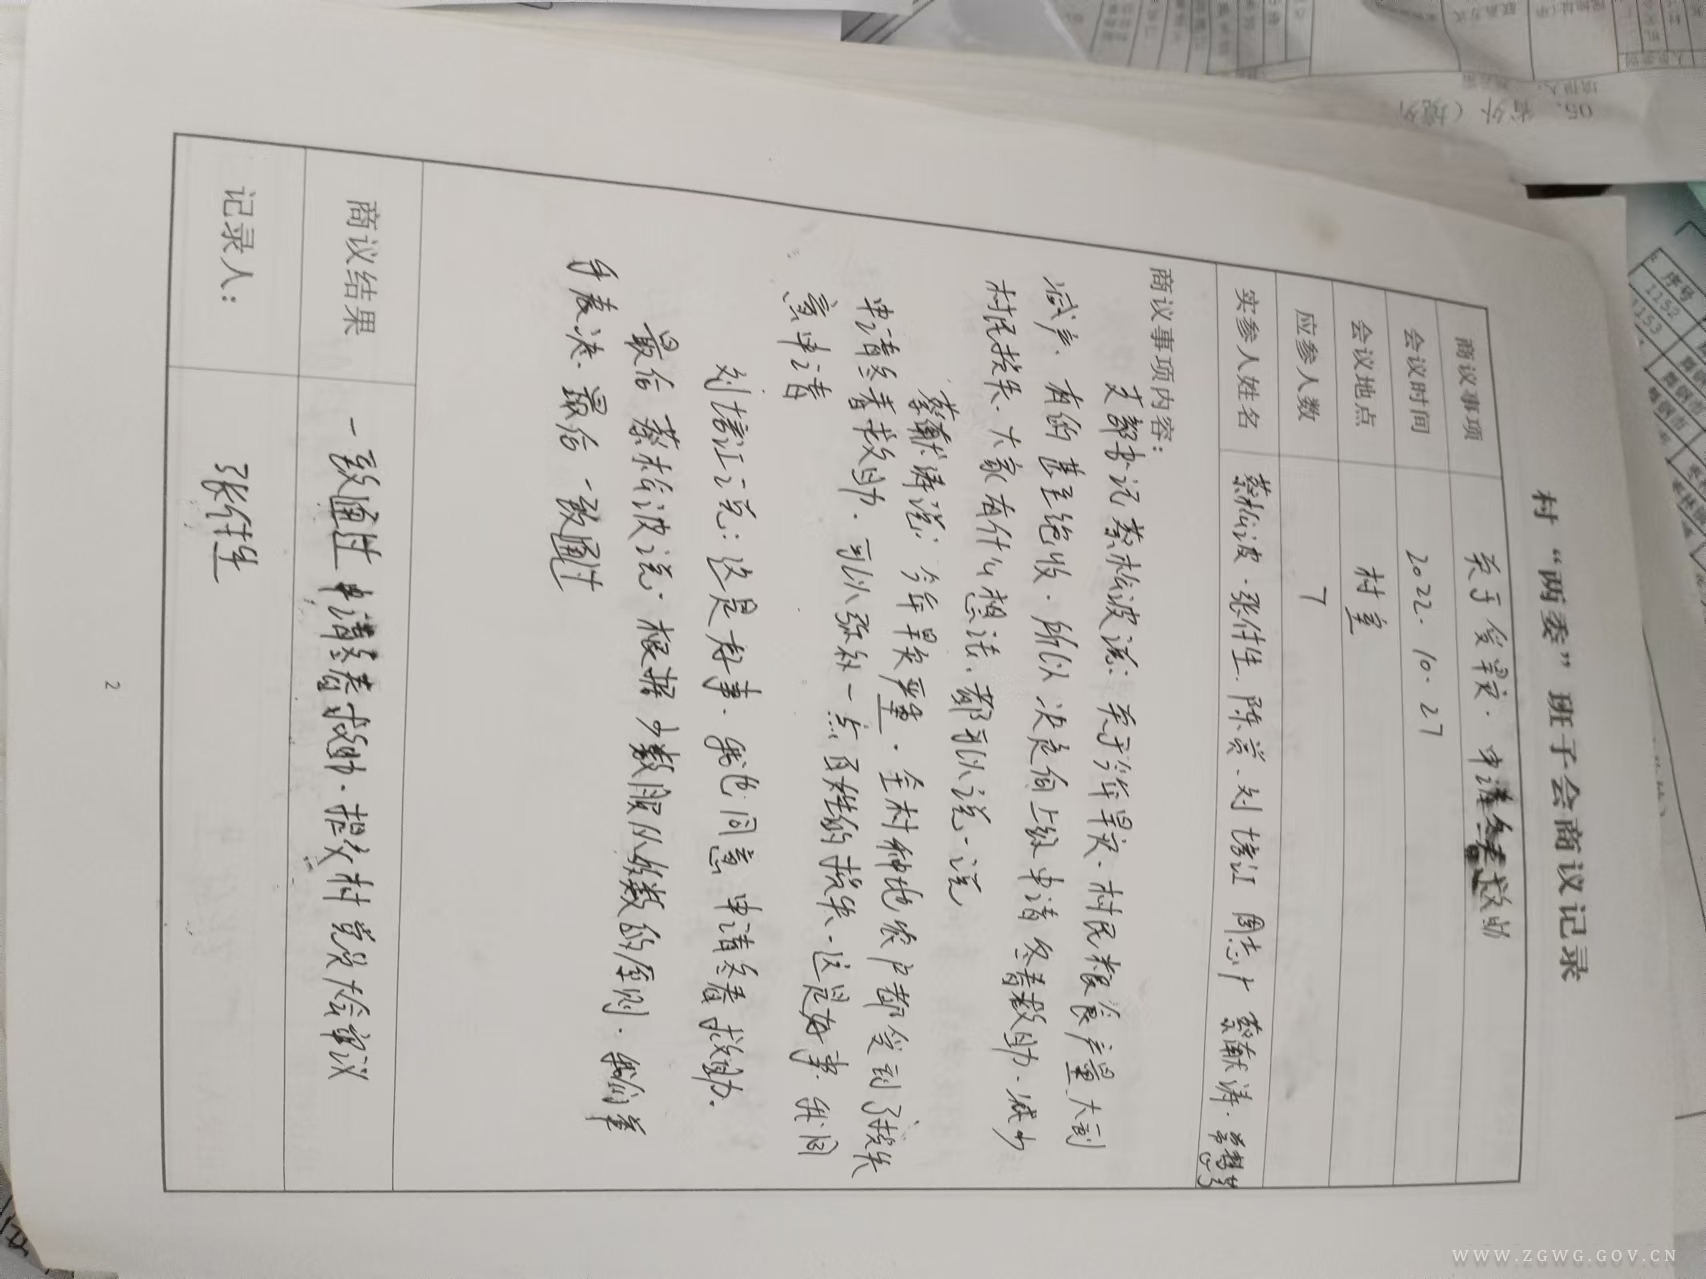 村“两委”班子会商议记录
商议事项 关于受旱灾.申请冬春救助
会议时间 2022.10.27
会议地点 村室
应参人数 7
实参人姓名 蔡松波.张付生.陈兰.刘培江 周志 蔡献涛.
商议事项内容:
支部书记蔡松波说:关于今年旱灾.村民粮食产量大到
减产.有的甚至绝收.所以决定向上级申请冬春救助.减少
村民损失.大家有什么想法.都可以说一说
蔡献涛说:今年旱灾严重.全村种地农户都受到了损失
申请冬春救助.可以弥补一点百姓的损失.这是好事.我同
意申请
刘培江说:这是好事.我也同意申请冬春救助.
最后蔡松波说.根据少数服从多数的原则.我们举
手表决.最后一致通过
商议结果 一致通过申请冬春救助.提交村党员大会审议
记录人: 张付生
2
05. 省外（境外
序号
1152
1153
WWW.ZGWG.GOV.CN